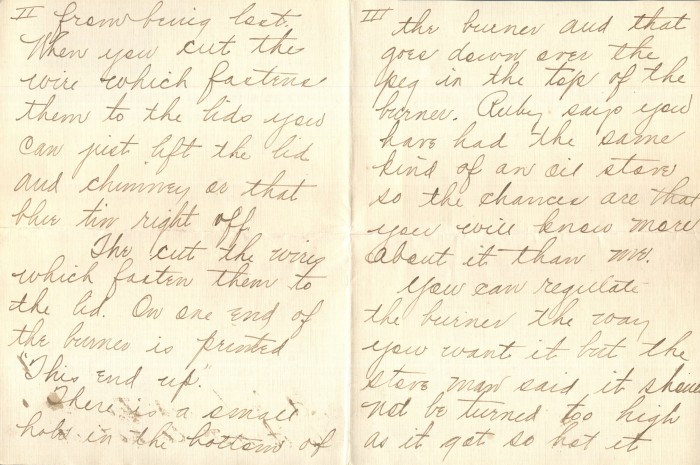 II from being lost.
When you cut the
wire which fastens
them to the lids you
can just lift the lid
and chimney or that
blue tin right off
The cut the wires
which fasten them to
the lid. On one end of
the burner is printed
"This end up".
There is a small
hole in the bottom of
III the burner and that
goes down over the
peg in the top of the
burner. Ruby says you
have had the same
kind of an oil stove
so the chances are that
you will know more
about it than me.
You can regulate
the burner the way
you want it but the
stove man said it should
not be turned too high
as it got so hot it